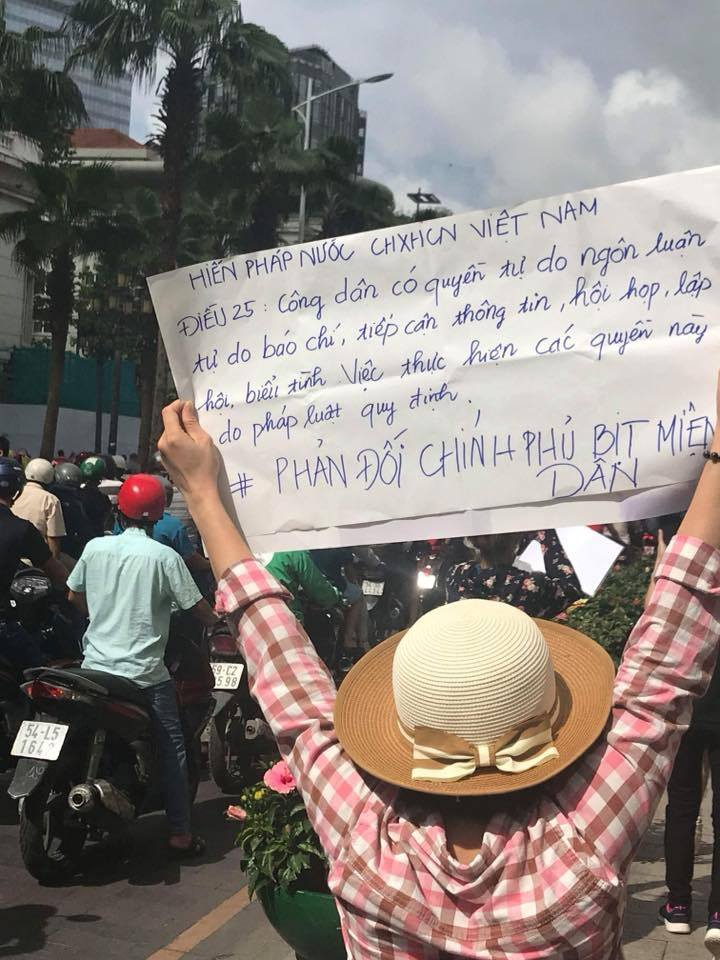 HIẾN PHÁP NƯỚC CHXHCN VIỆT NAM
ĐIỀU 25: Công dân có quyền tự do ngôn luận
tự do báo chí, tiếp cận thông tin, hội họp, lập
hội, biểu tình. Việc thực hiện các quyền này
do pháp luật quy định.
# PHẢN ĐỐI CHÍNH PHỦ BỊT MIỆN
DÂN
54-L5
59-C2